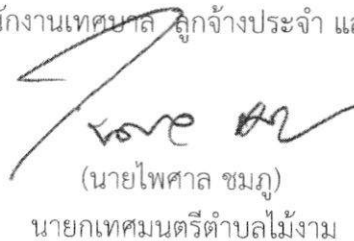 นักงานเทศบาล ลูกจ้างประจำ และ
(นายไพศาล ชมภู)
นายกเทศมนตรีตำบลไม้งาม